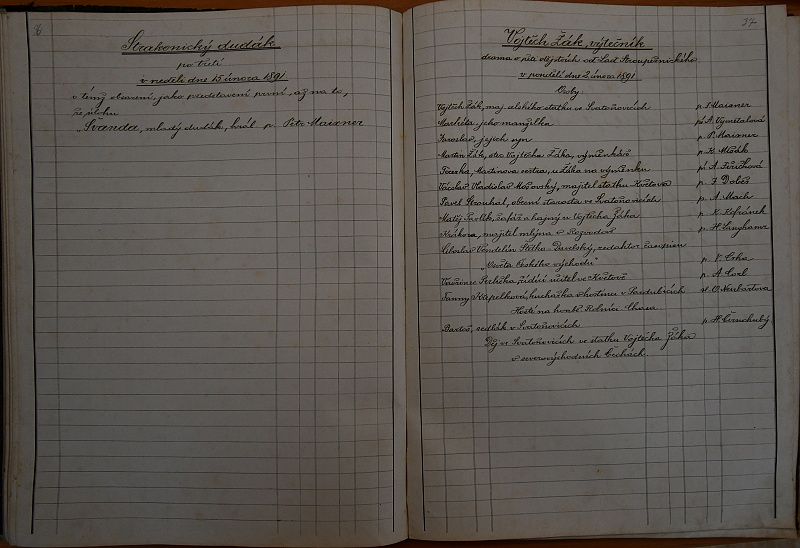 Strakonický dudák
po třetí
v neděli dne 15 února 1891
v témž obsazení, jako představení první, až na to,
že úlohu
„Švanda, mladý dudák, hrál p. Petr Maixner
37
Vojtěch Žák, výtečník
drama o pěti dějstvích od Lad. Stroupežnického
v pondělí dne 2 února 1891
Osoby:
Vojtěch Žák, maj. selského statku ve Svatoňovicích p. J. Maixner
Markéta jeho manželka A. Vymětalová
Jaroslav, jejich syn p. P. Maixner
Martin Žák, otec Vojtěcha Žáka, výměnkář p. K. Mlčák
Terezka, Martinova sestra, u Žáka na výměnku A. Jiřičková
Václav Vladislav Mošovský, majitel statku Květova p. F. Dobeš
Pavel Strouhal, obecní starosta ve Svatoňovicích p. A. Mach
Matěj šafář a hajný u Vojtěcha Žáka p. K.
Krákora, majitel mlýna p. H. Langhans
Vendelín redaktor časopisu
„Osvěta Českého východu" p. V.
Vavřinec řídící učitel ve Květově p. A.
Fanny Křepelková, kuchařka v hostinci v Pardubicích sl. O. Neubartova
Hosté na honbě. Rolníci. Chasa.
Bartoš, sedlák v Svatoňovicích p. H. Černohubý
Děj ve Svatoňovicích ve statku Vojtěcha Žáka
v severovýchodních Čechách.